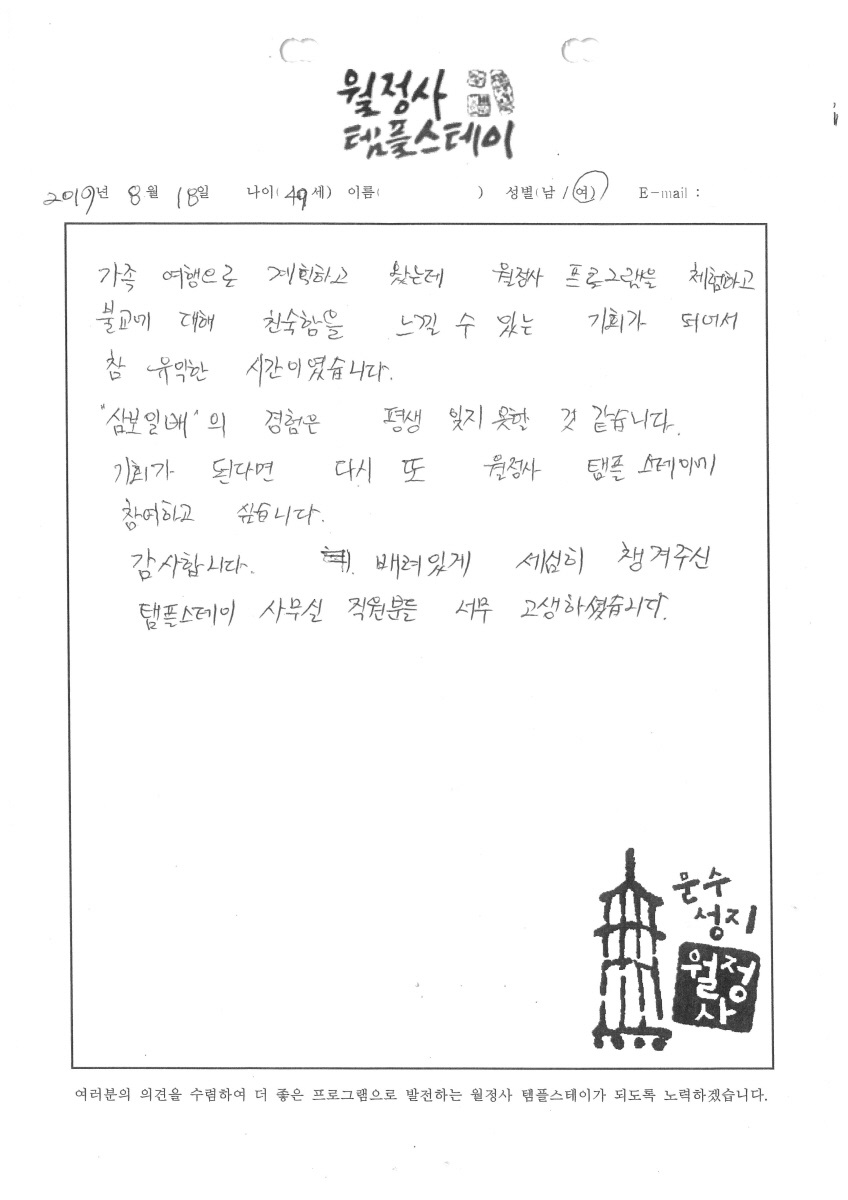 월정사
템플스테이
2019년 8월 18일 나이(49세) 이름( ) 성별(남/여) E-mail :
가족 여행으로 계획하고 왔는데 월정사 프로그램을 체험하고
불교에 대해 친숙함을 느낄 수 있는 기회가 되어서
참 유익한 시간이였습니다.
"삼보일배"의 경험은 평생 잊지 못할 것 같습니다.
기회가 된다면 다시 또 월정사 탬플 스테이에
참여하고 싶습니다.
감사합니다. 배려있게 세심히 챙겨주신
탬플스테이 사무실 직원분들 너무 고생하셨습니다.
문수
성지
월정
사
여러분의 의견을 수렴하여 더 좋은 프로그램으로 발전하는 월정사 템플스테이가 되도록 노력하겠습니다.